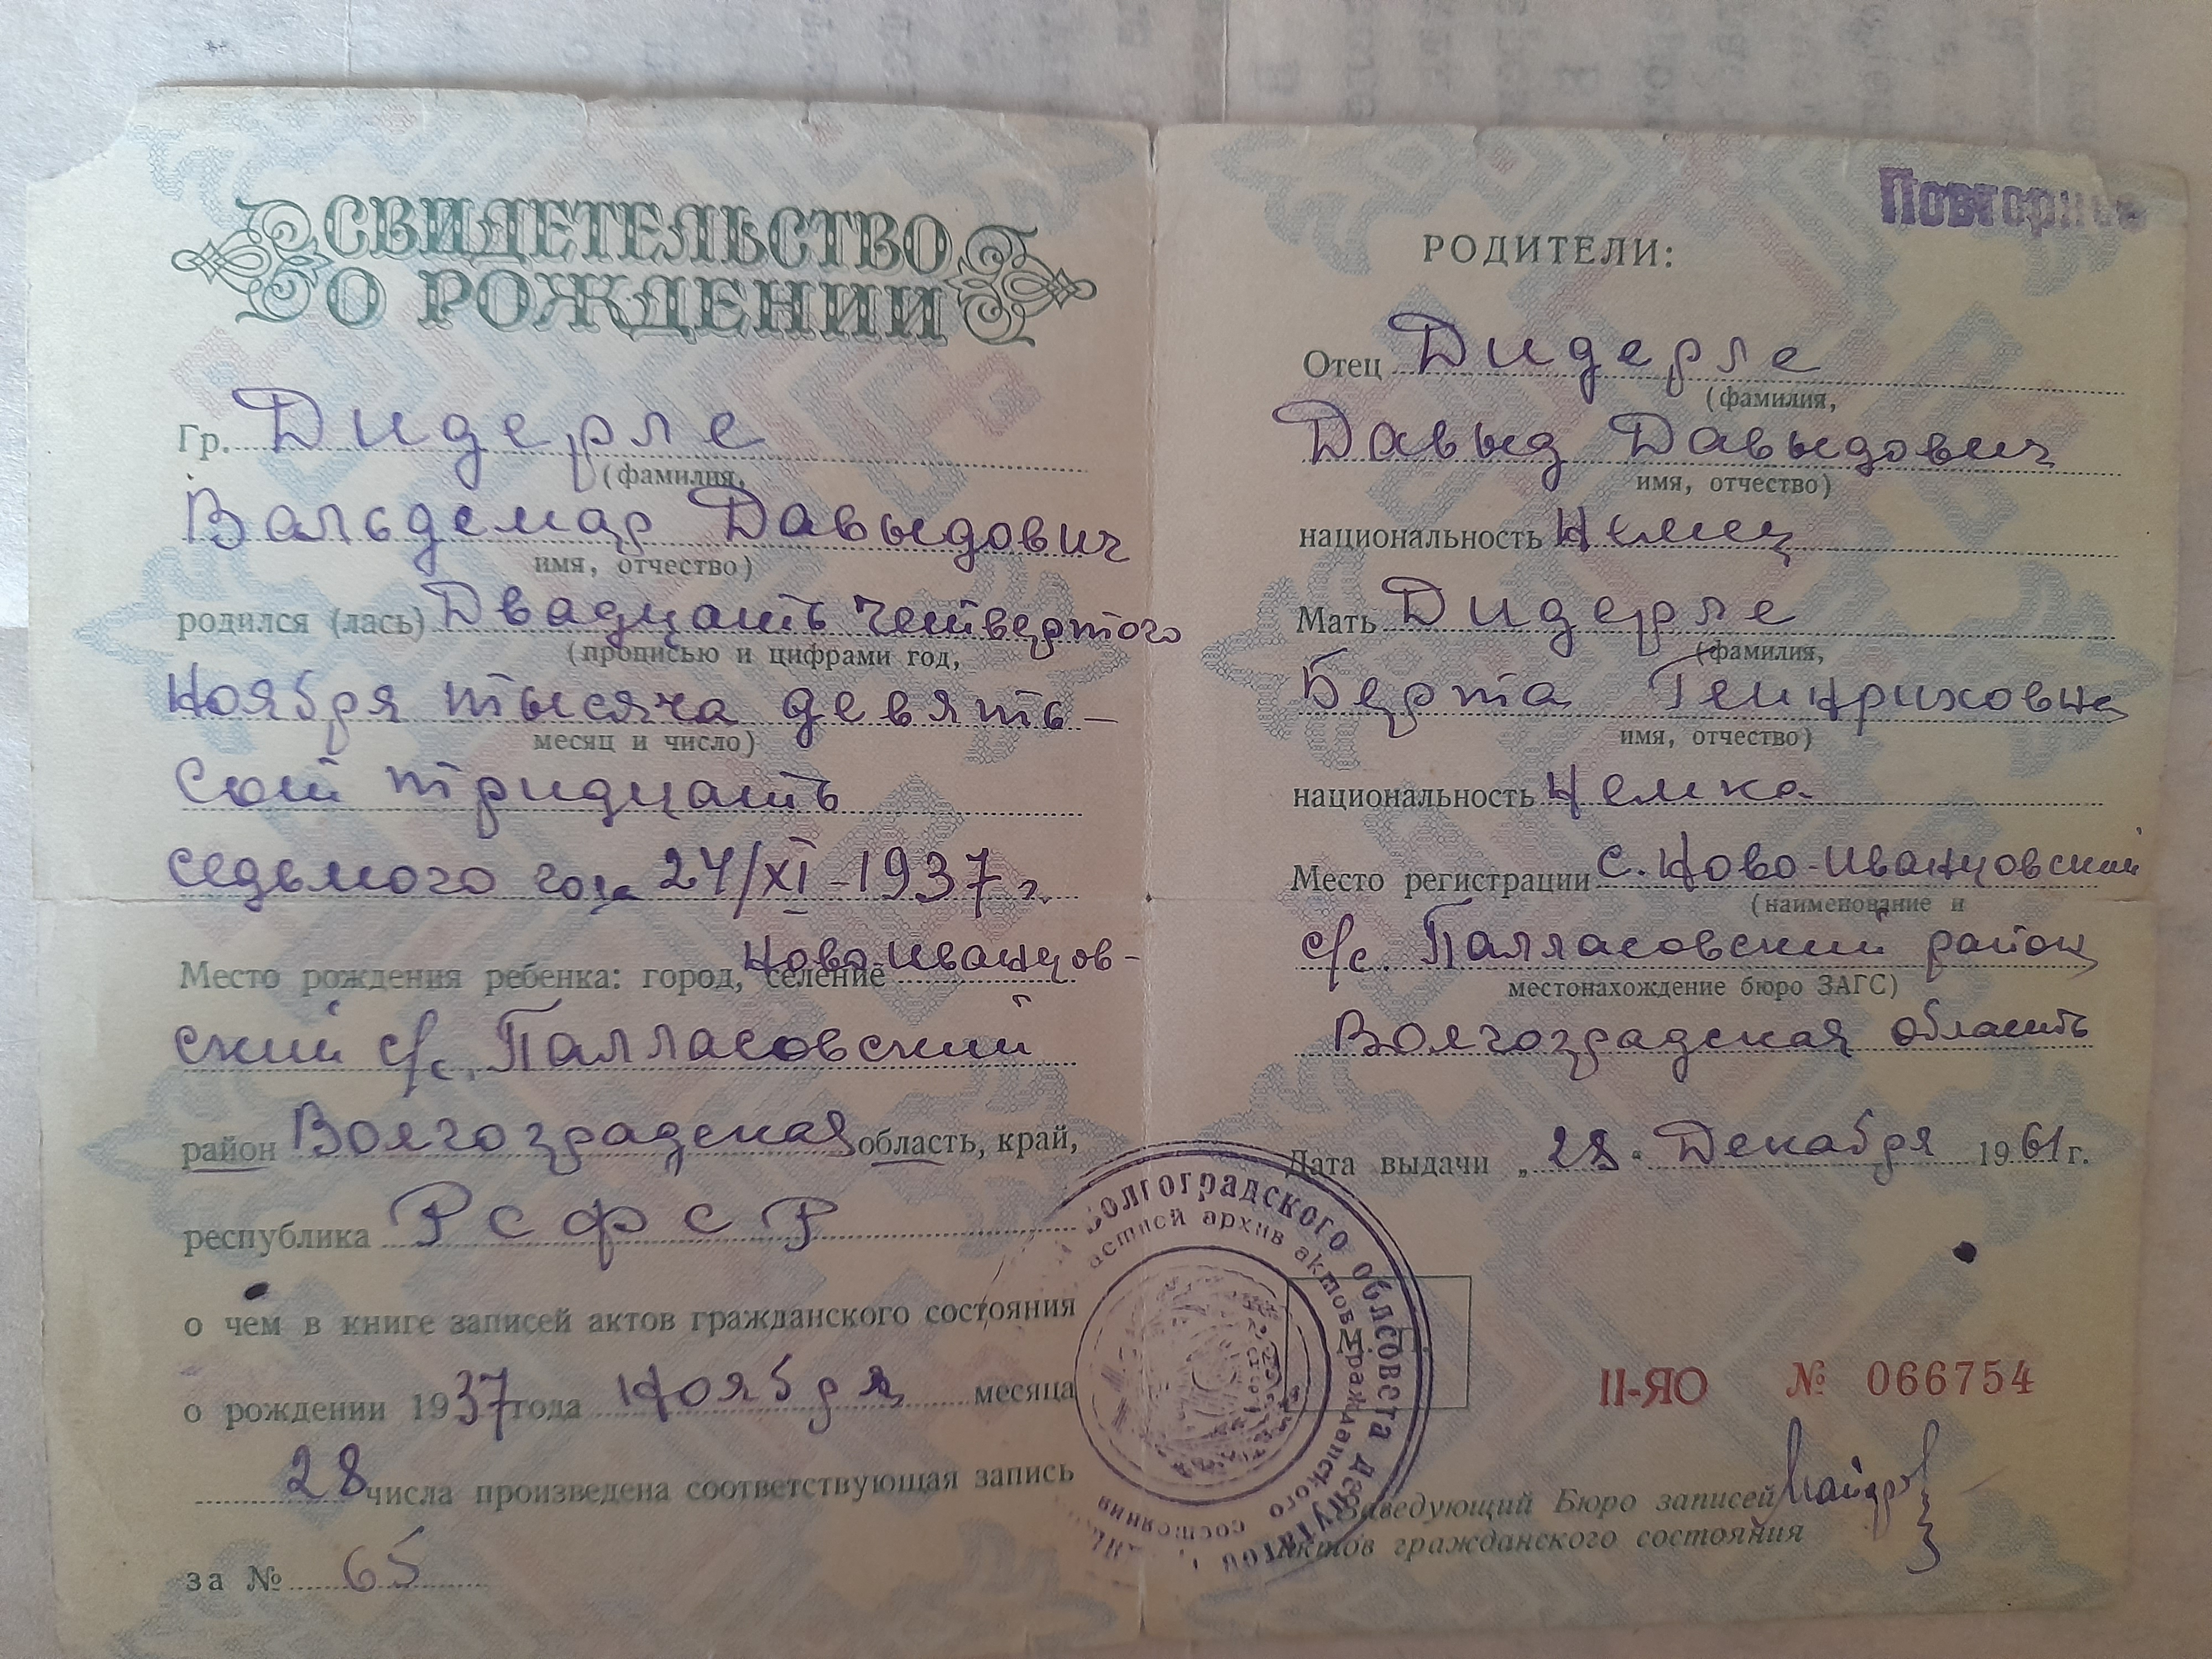 СВИДЕТЕЛЬСТВО
О РОЖДЕНИИ
Гр. Дидерле
(фамилия,
Вальдемар Давыдович
имя, отчество)
родился (лась) Двадцать четвертого
(прописью и цифрами год,
Ноября тысяча девять-
месяц и число)
сот тридцать
седьмого года 24/XI-1937 г.
Место рождения ребенка: город, селение Ново-Иванцов-
ский с/с. Палласовский
район Волгоградская область, край,
республика РСФСР
о чем в книге записей актов гражданского состояния
о рождении 1937 года Ноября месяца
28 числа произведена соответствующая запись
за № 65
Повторное
РОДИТЕЛИ:
Отец Дидерле
(фамилия,
Давыд Давыдович
имя, отчество)
национальность Немец
Мать Дидерле
(фамилия,
Берта Генриховна
имя, отчество)
национальность Немка
Место регистрации с. Ново-Иванцовский
(наименование и
с/с. Палласовский район
местонахождение бюро ЗАГС)
Волгоградская область
Дата выдачи „28“ Декабря 1961 г.
М. П.
Волгоградского облсовета депутатов
архив актов гражданского состояния
II-ЯО № 066754
Заведующий Бюро записей
актов гражданского состояния